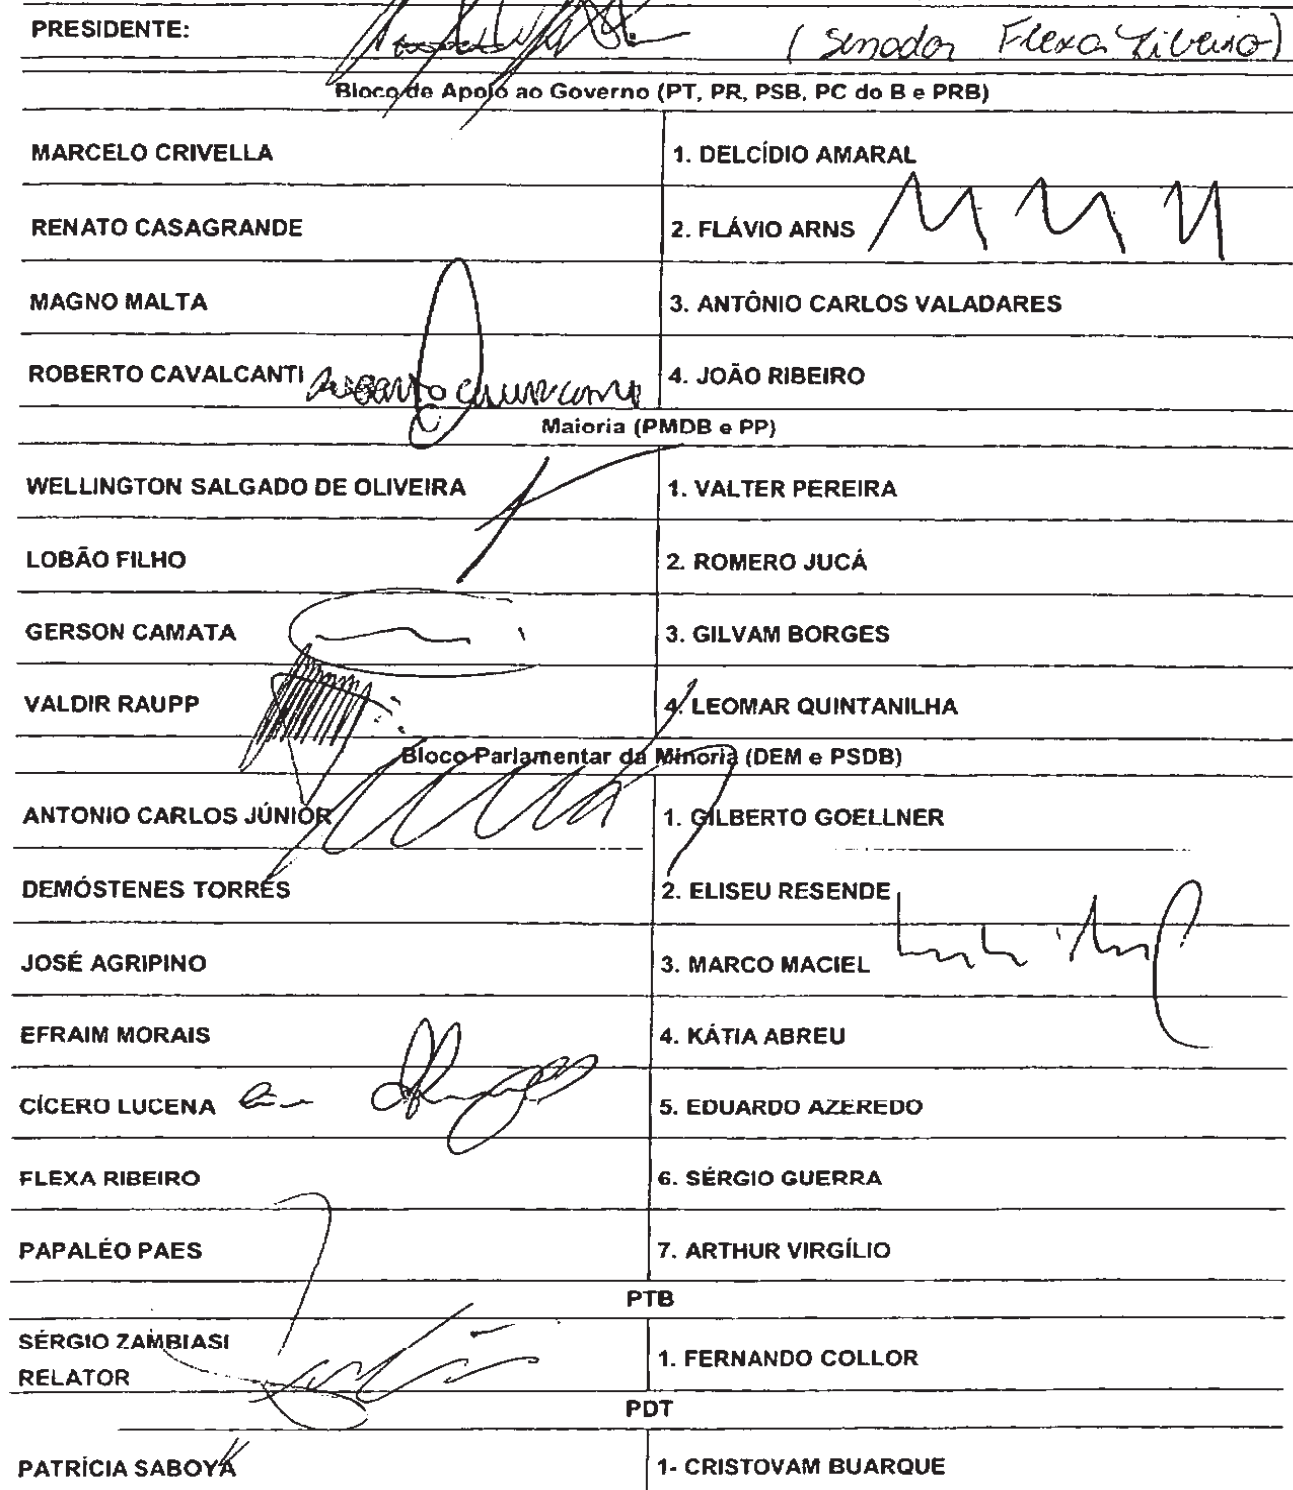 PRESIDENTE: (Senador Flexa Ribeiro)
Bloco de Apoio ao Governo (PT, PR, PSB, PC do B e PRB)
MARCELO CRIVELLA 1. DELCÍDIO AMARAL
RENATO CASAGRANDE 2. FLÁVIO ARNS
MAGNO MALTA 3. ANTÔNIO CARLOS VALADARES
ROBERTO CAVALCANTI Roberto Cavalcanti 4. JOÃO RIBEIRO
Maioria (PMDB e PP)
WELLINGTON SALGADO DE OLIVEIRA 1. VALTER PEREIRA
LOBÃO FILHO 2. ROMERO JUCÁ
GERSON CAMATA 3. GILVAM BORGES
VALDIR RAUPP 4. LEOMAR QUINTANILHA
Bloco Parlamentar da Minoria (DEM e PSDB)
ANTONIO CARLOS JÚNIOR 1. GILBERTO GOELLNER
DEMÓSTENES TORRES 2. ELISEU RESENDE
JOSÉ AGRIPINO 3. MARCO MACIEL
EFRAIM MORAIS 4. KÁTIA ABREU
CÍCERO LUCENA 5. EDUARDO AZEREDO
FLEXA RIBEIRO 6. SÉRGIO GUERRA
PAPALÉO PAES 7. ARTHUR VIRGÍLIO
PTB
SÉRGIO ZAMBIASI
RELATOR 1. FERNANDO COLLOR
PDT
PATRÍCIA SABOYA 1- CRISTOVAM BUARQUE